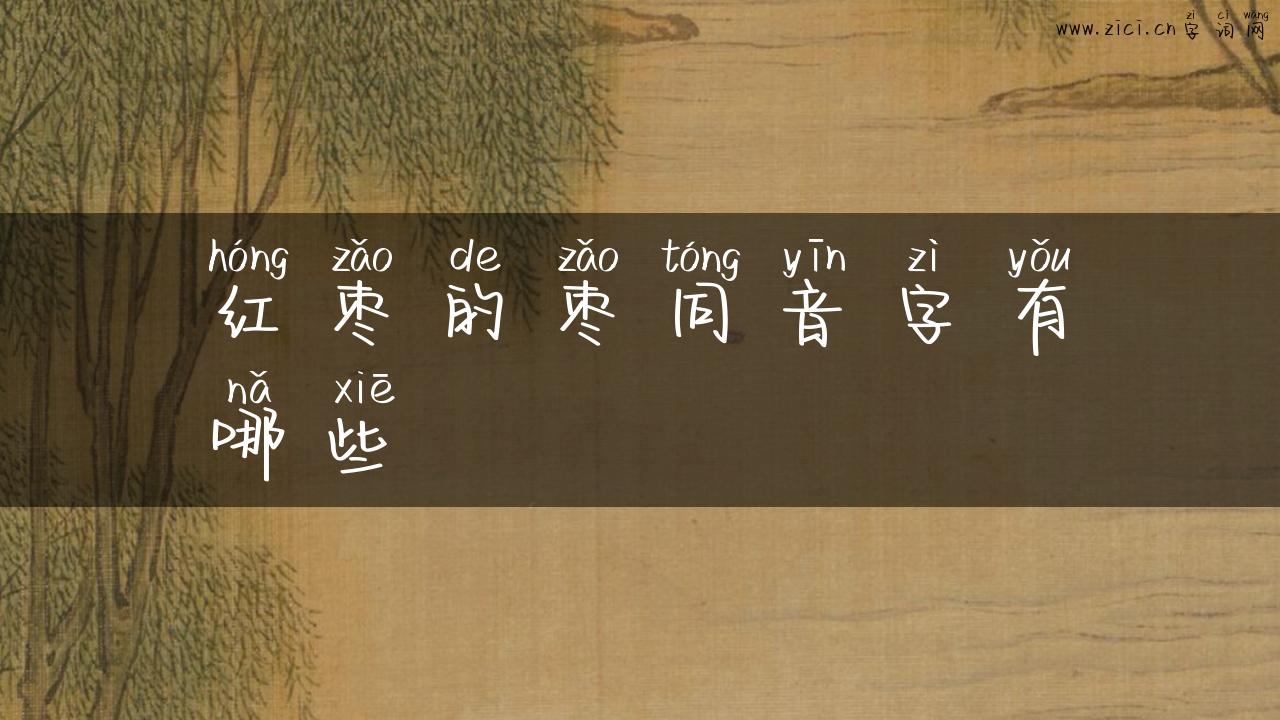 zì cí wǎng
www.zici.cn 字词网
hóng zǎo de zǎo tóng yīn zì yǒu
红枣的枣同音字有
nǎ xiē
哪些